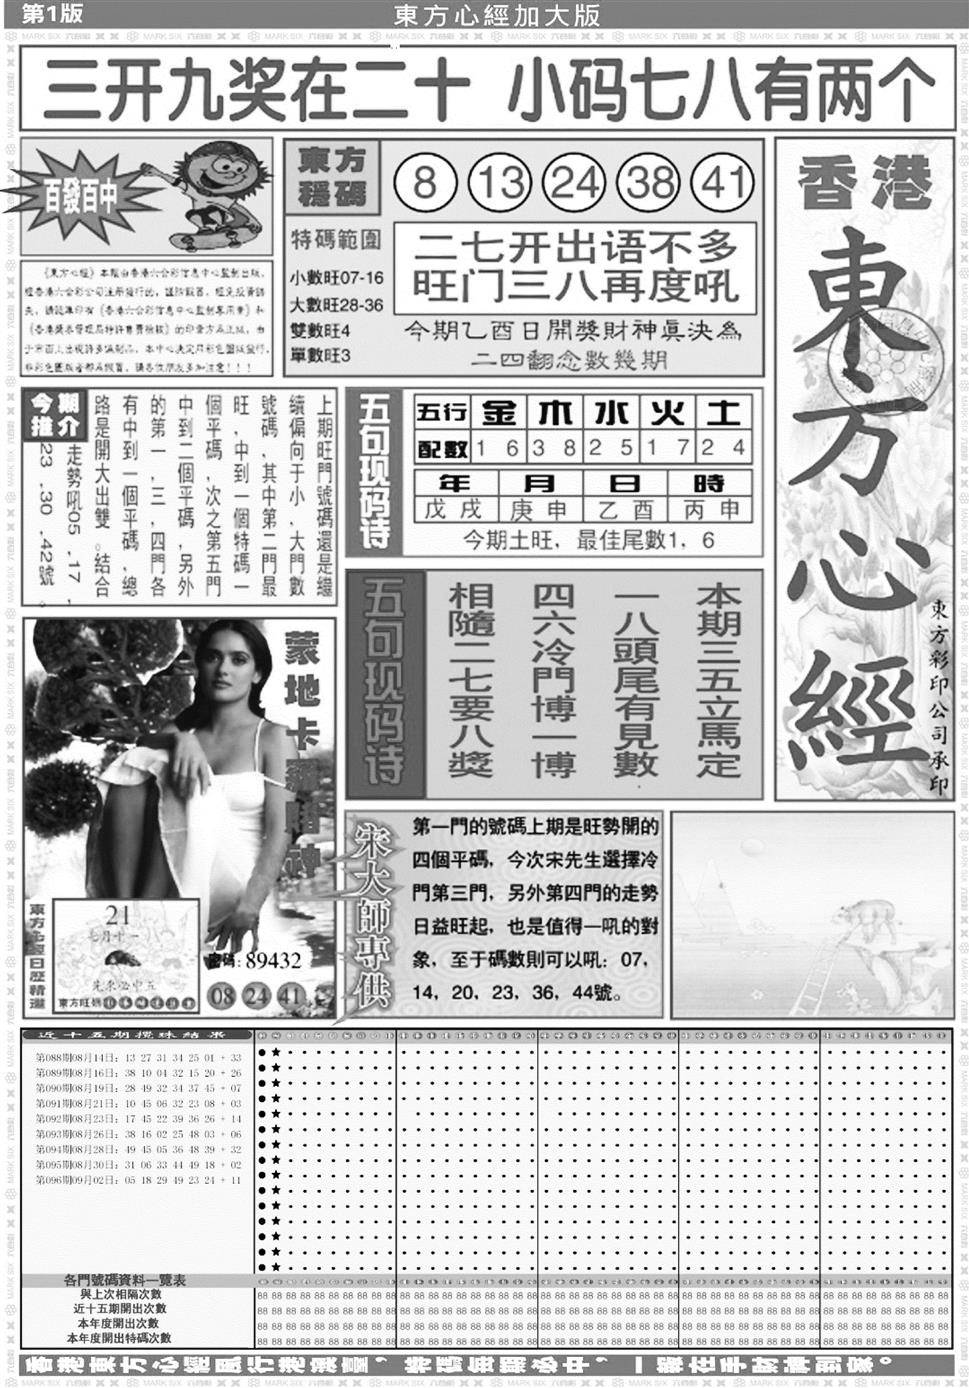 第1版
東方心經加大版
三开九奖在二十 小码七八有两个
百發百中
東方
穩碼
8 13 24 38 41
特碼範圍
小數旺07-16
大數旺28-36
雙數旺4
單數旺3
二七开出语不多
旺门三八再度吼
今期乙酉日開獎財神真決為
二四翻念數幾期
香港
東方心經
東方彩印公司承印
《東方心經》本報由香港六合彩信息中心監制出版,
今期
推介
上期旺門號碼還是繼
續偏向于小,大門數
號碼,其中第二門最
旺,中到一個特碼一
個平碼,次之第五門
中到二個平碼,另外
的第一,三,四門各
有中到一個平碼,總
路是開大出雙。結合
走勢吼05,17,
23,30,42號。
五句现码诗
五行 金 木 水 火 土
配數 1 6 3 8 2 5 1 7 2 4
年 月 日 時
戊戌 庚申 乙酉 丙申
今期土旺，最佳尾數1，6
五句现码诗
本期三五立馬定
一八頭尾有見數
四六冷門博一博
相隨二七要八獎
蒙地卡羅賭神
21
七月十一
密碼:89432
08 24 41
宋大師專供
第一門的號碼上期是旺勢開的
四個平碼，今次宋先生選擇冷
門第三門，另外第四門的走勢
日益旺起，也是值得一吼的對
象，至于碼數則可以吼：07，
14，20，23，36，44號。
近十五期攪珠結果
第088期08月14日: 13 27 31 34 25 01 + 33
第089期08月16日: 38 10 04 32 15 20 + 26
第090期08月19日: 28 49 32 34 37 45 + 07
第091期08月21日: 10 45 06 32 23 08 + 03
第092期08月23日: 17 45 22 39 36 26 + 14
第093期08月26日: 38 16 02 25 48 03 + 06
第094期08月28日: 49 45 05 36 48 39 + 32
第095期08月30日: 31 06 33 44 49 18 + 02
第096期09月02日: 05 18 29 49 23 24 + 11
各門號碼資料一覽表
與上次相隔次數
近十五期開出次數
本年度開出次數
本年度開出特碼次數